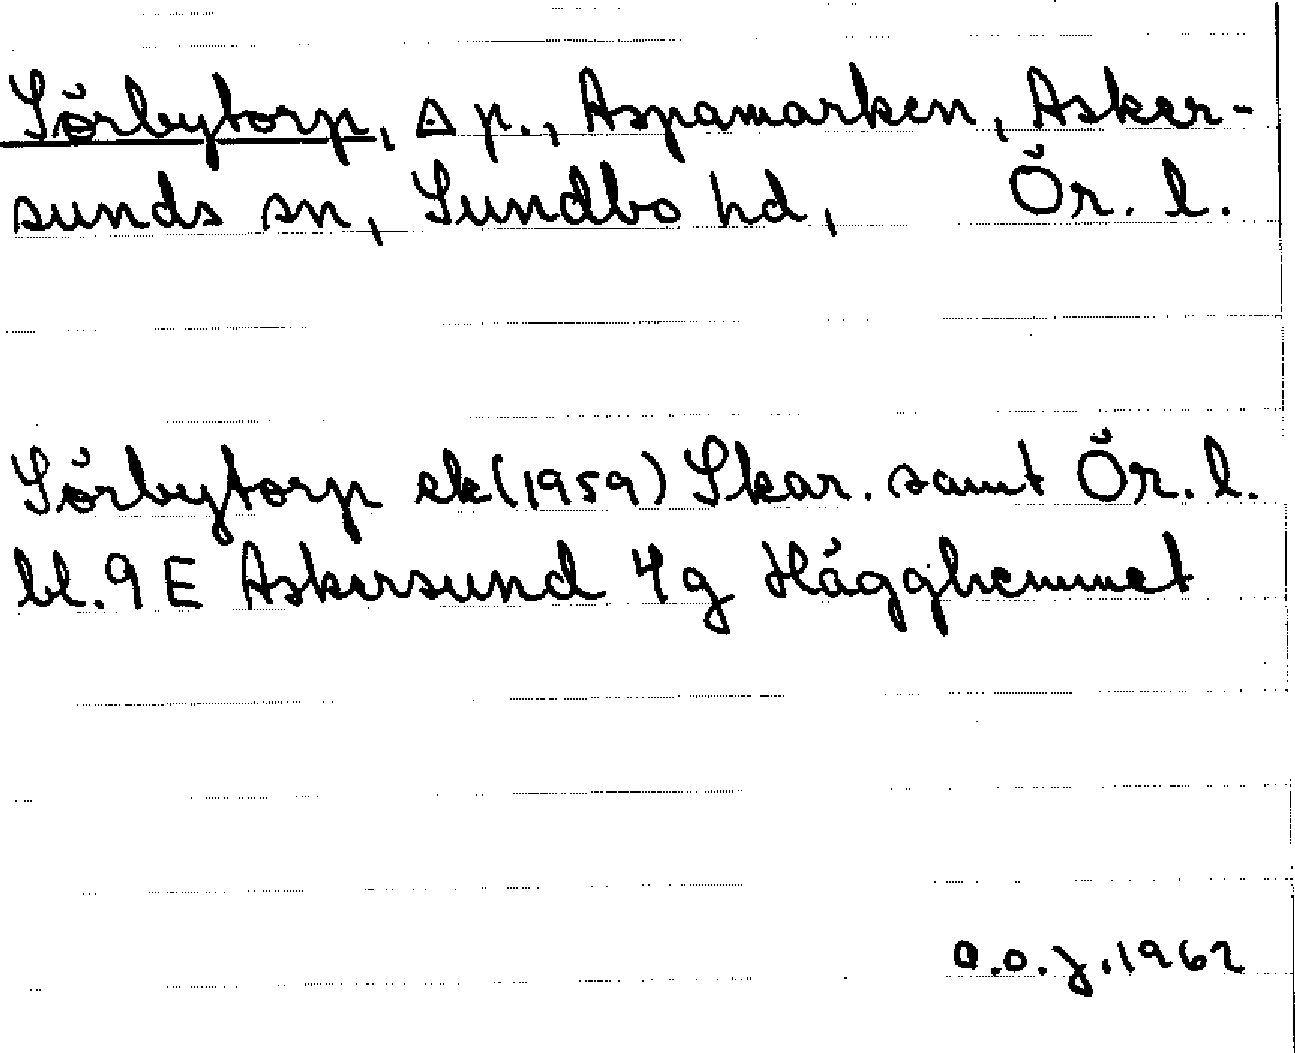 Sörbytorp, △ p., Aspamarken, Asker-
sunds sn, Sundbo hd, Ör. l.
Sörbytorp ek (1959) Skar. samt Ör. l.
bl. 9 E Askersund 4g Hägghemmet
a.o.j. 1962